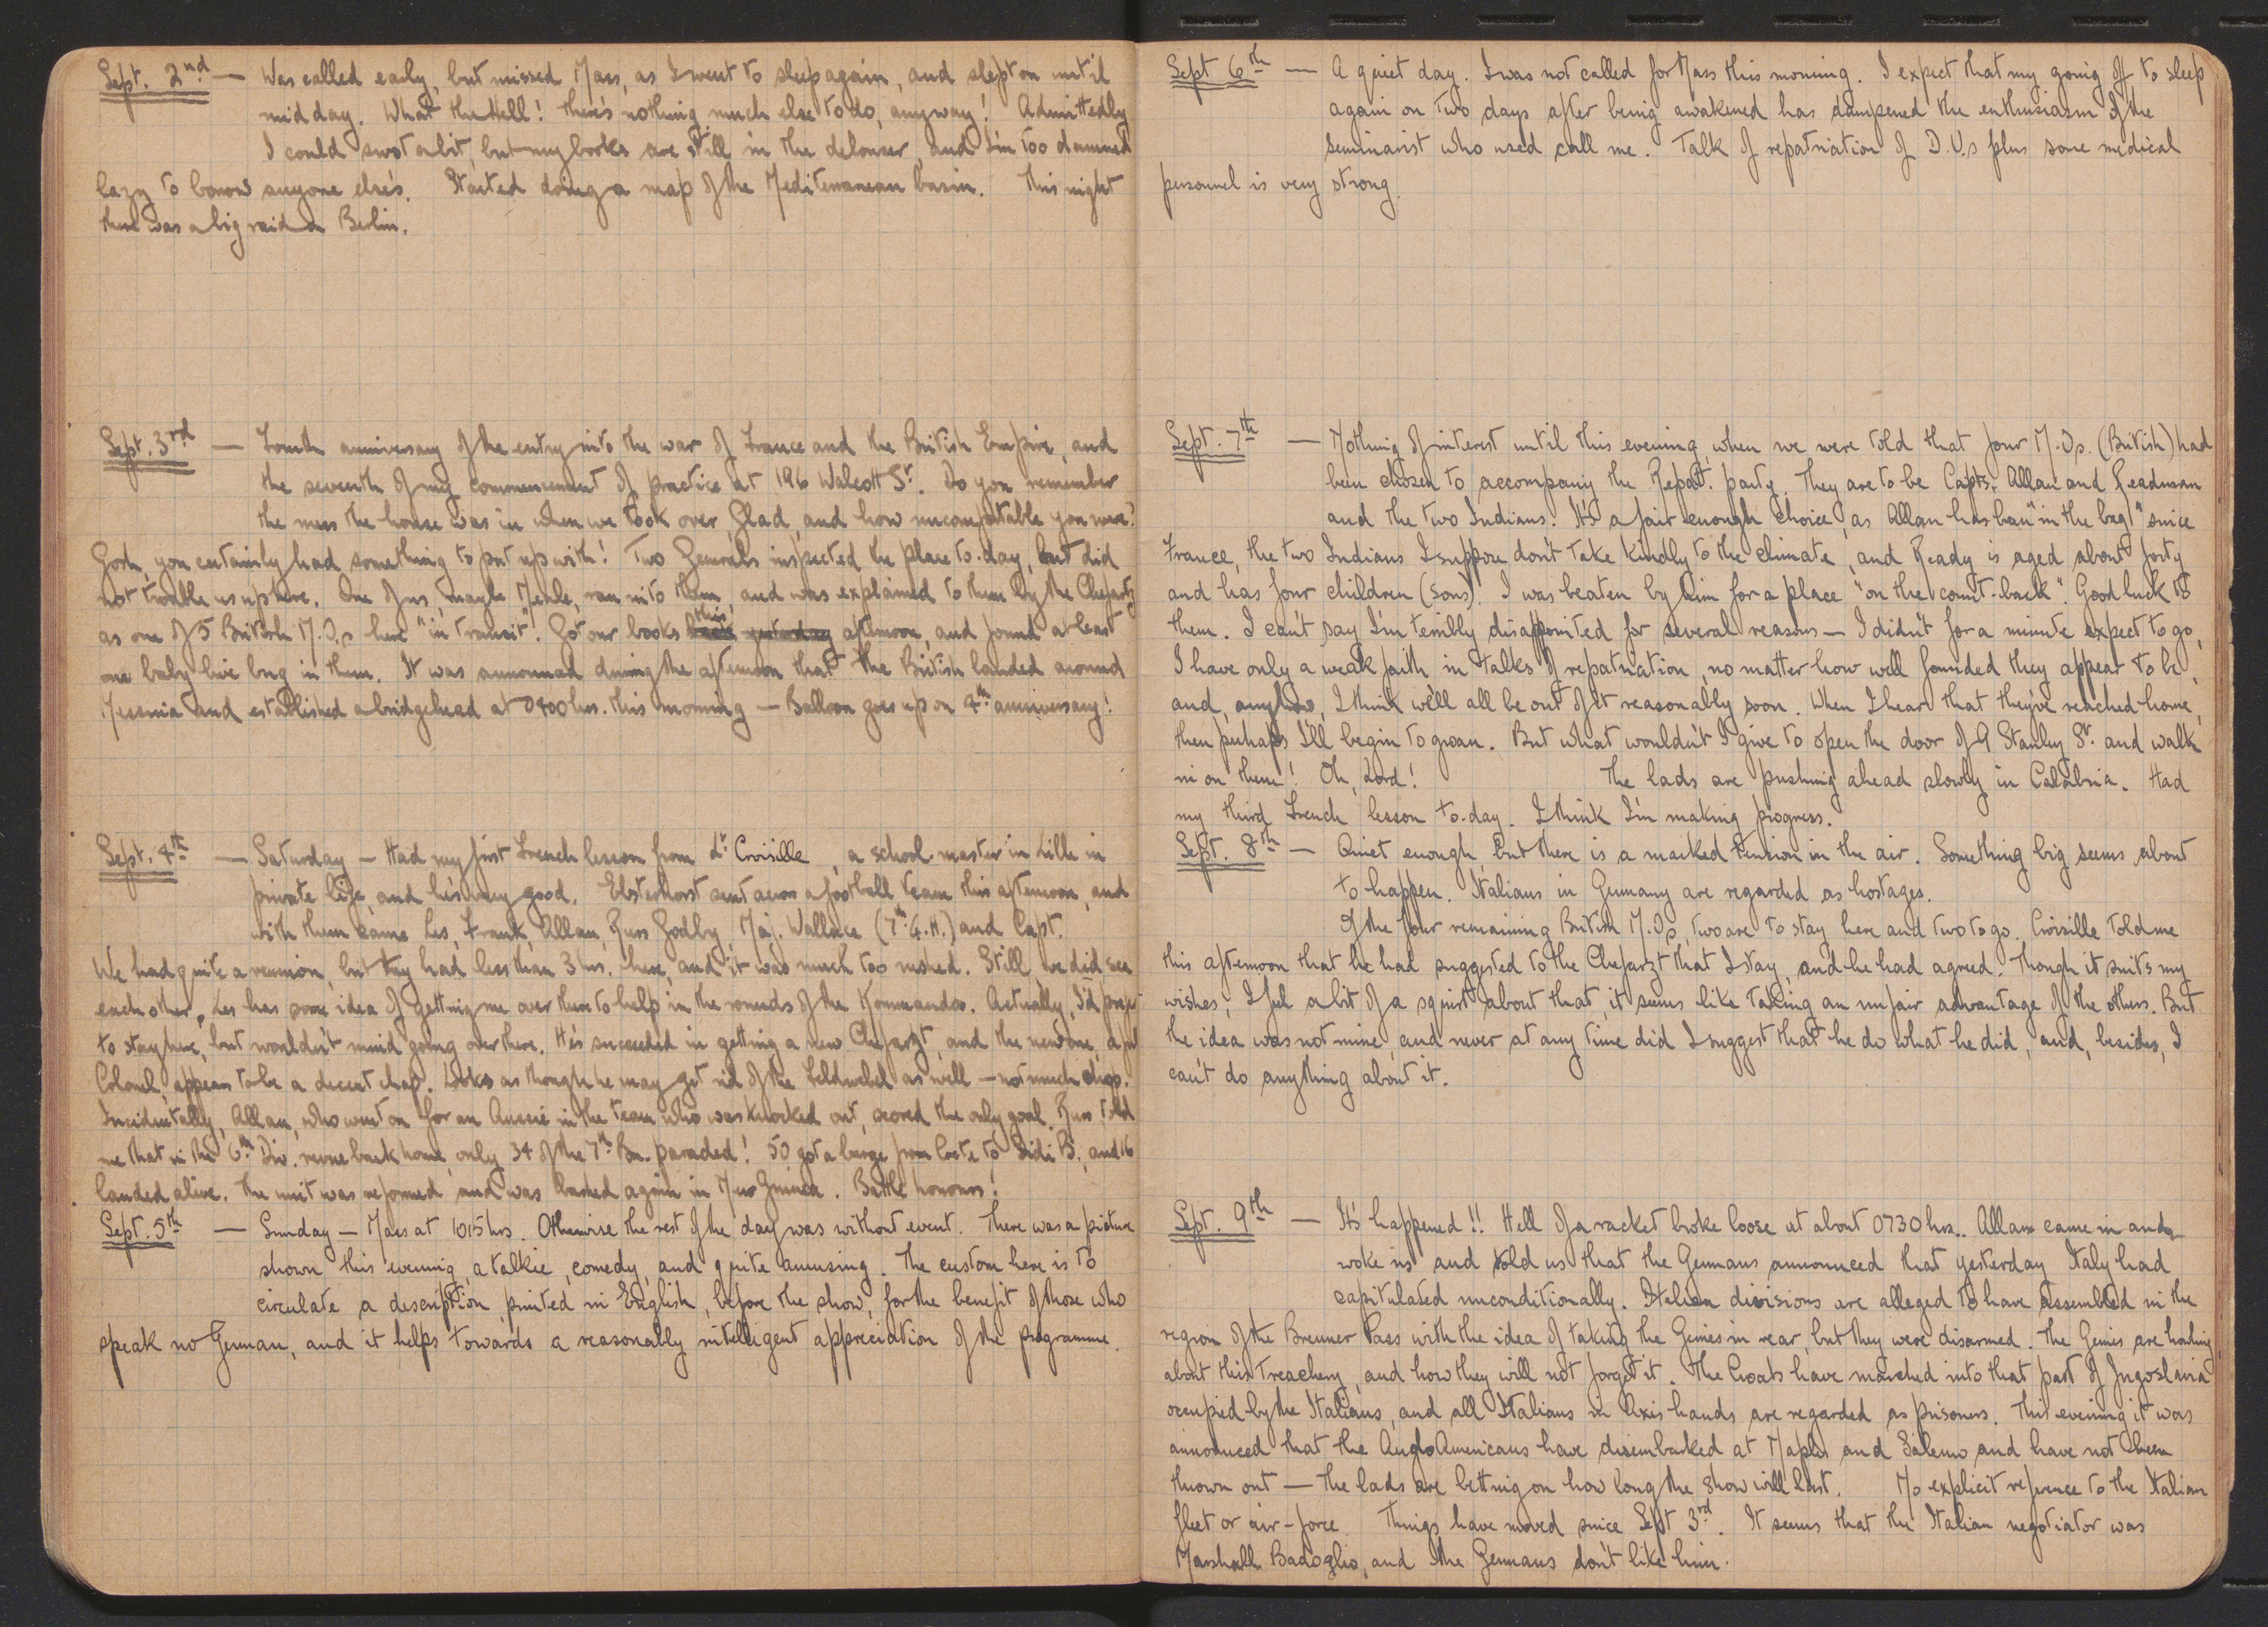 Sept. 2nd — Was called early, but missed Mass, as I went to sleep again, and slept on until
midday. What the Hell! there's nothing much else to do, anyway! Admittedly
I could swot a bit, but my books are still in the delouser, and I'm too damned
lazy to borrow anyone else's. Started doing a map of the Mediterranean basin. This night
there was a big raid on Berlin.
Sept. 3rd — Fourth anniversary of the entry into the war of France and the British Empire, and
the seventh of my commencement of practice at 196 Walcott St. Do you remember
the mess the house was in when we took over, Glad, and how uncomfortable you were?
Gosh, you certainly had something to put up with! Two Generals inspected the place to-day, but did
not trouble us up here. One of us, maybe Merle, ran into them, and was explained to them by the Chefarzt
as one of 5 British M.O.s here "in transit". Got our books back yesterday this afternoon, and found at least
one baby live bug in them. It was announced during the afternoon that the British landed around
Messina and established a bridgehead at 0400 hrs. this morning — Balloon goes up on 4th anniversary!
Sept. 4th — Saturday — Had my first French lesson from Lt Croiselle a school-master in Lille in
private life, and he's very good. Elsterhorst sent across a football team this afternoon, and
with them came Les, Frank, Allan, Russ Godby, Maj. Wallace (7th G.H.) and Capt.
We had quite a reunion, but they had less than 3 hrs. here, and it was much too rushed. Still we did see
each other. Les has some idea of getting me over there to help in the rounds of the Kommandos. Actually, I'd prefer
to stay here, but wouldn't mind going over there. He's succeeded in getting a new Chefarzt, and the new one, a full
Colonel, appears to be a decent chap. Looks as though he may get rid of the Feldwebel as well — not much chop.
Incidentally, Allan, who went on for an Aussie in the team who was knocked out, scored the only goal. Russ told
me that in the 6th Div. revue back home, only 34 of the 7th Bn. paraded! 50 got a barge from Crete to Sidi B., and 16
landed alive. The unit was reformed and was bashed again in New Guinea. Battle honours!
Sept. 5th — Sunday — Mass at 1015 hrs. Otherwise the rest of the day was without event. There was a picture
shown this evening, a talkie, comedy, and quite amusing. The custom here is to
circulate a description printed in English, before the show, for the benefit of those who
speak no German, and it helps towards a reasonably intelligent appreciation of the programme.
Sept 6th — A quiet day. I was not called for Mass this morning. I expect that my going off to sleep
again on two days after being awakened has dampened the enthusiasm of the
seminarist who used call me. Talk of repatriation of D.U.s plus some medical
personnel is very strong.
Sept. 7th — Nothing of interest until this evening, when we were told that four M.O.s. (British) had
been chosen to accompany the Repat. party. They are to be Capts. Allan and Readman
and the two Indians. It's a fair enough choice, as Allan has been "in the bag" since
France, the two Indians I suppose don't take kindly to the climate, and Ready is aged about forty
and has four children (sons). I was beaten by him for a place "on the count-back". Good luck to
them. I can't say I'm terribly disappointed for several reasons — I didn't for a minute expect to go,
I have only a weak faith in talks of repatriation, no matter how well founded they appear to be,
and, anyhow, I think we'll all be out of it reasonably soon. When I hear that they've reached home,
then perhaps I'll begin to groan. But what wouldn't I give to open the door of 9 Stanley St. and walk
in on them! Oh, Lord! The lads are pushing ahead slowly in Calabria. Had
my third French lesson to-day. I think I'm making progress.
Sept. 8th — Quiet enough but there is a marked tension in the air. Something big seems about
to happen. Italians in Germany are regarded as hostages.
Of the four remaining British M.O.s, two are to stay here and two to go. Croisille told me
this afternoon that he had suggested to the Chefarzt that I stay, and he had agreed. Though it suits my
wishes, I feel a bit of a squirt about that, it seems like taking an unfair advantage of the others. But
the idea was not mine, and never at any time did I suggest that he do what he did, and, besides, I
can't do anything about it.
Sept. 9th — It's happened!! Hell of a racket broke loose at about 0730 hrs.. Allan came in and
woke us and told us that the Germans announced that yesterday Italy had
capitulated unconditionally. Italian divisions are alleged to have assembled in the
region of the Brenner Pass with the idea of taking the Gerries in rear, but they were disarmed. The Gerries are howling
about this treachery, and how they will not forget it. The Croats have marched into that part of Jugoslavia
occupied by the Italians, and all Italians in Axis hands are regarded as prisoners. This evening it was
announced that the Anglo Americans have disembarked at Naples and Salerno and have not been
thrown out — the lads are betting on how long the show will last. No explicit reference to the Italian
fleet or air-force. Things have moved since Sept 3rd. It seems that the Italian negotiator was
Marshall Badoglio, and the Germans don't like him.